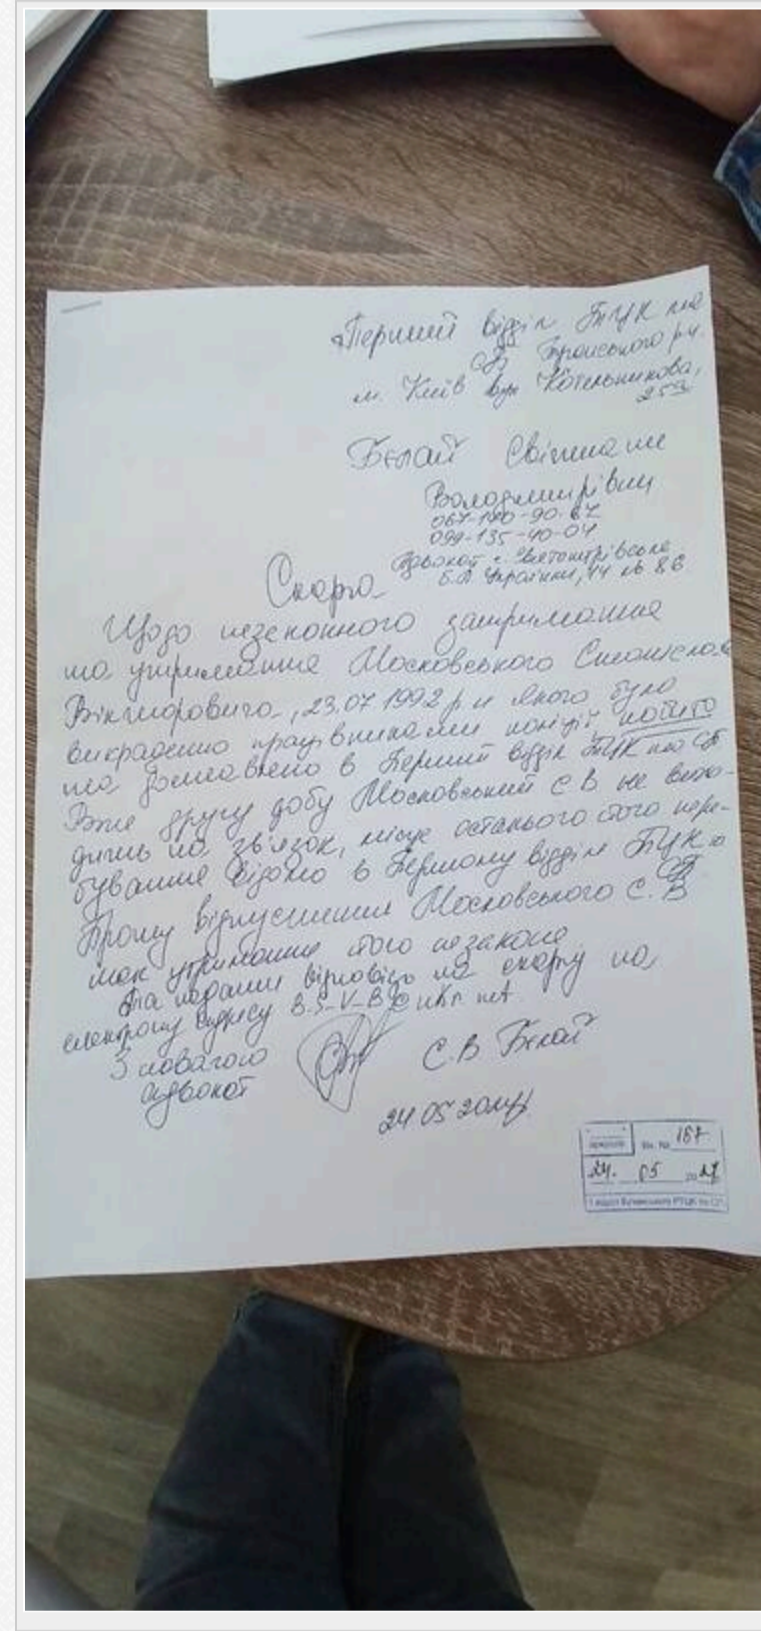 Перший відділ ТЦК та
СП Троїського р.у.
м. Київ вул Котельникова,
25а
Бєлай Світлани
Володимирівни
067-190-90-67
099-135-40-04
Адвокат с. Святопетрівське
б.Л. Українки, 14 кв 86
Скарга
Щодо незаконного затримання
та утримання Московського Станіслава
Вікторовича, 23.07 1992 р.н якого було
викрадено працівниками поліції, побито
та доставлено в Перший відділ ТЦК та СП
Вже другу добу Московський С В не вихо-
дить на зв'язок, місце останього його пере-
бування відомо в Першому відділі ТЦК та
СП
Прошу відпустити Московського С. В
так утримання його незаконне
Та надати відповідь на скаргу на
електрону адресу B-S-V-B@ukr.net
З повагою
адвокат С.В Бєлай
24 05 2024р
Вх. № 167
24. 05 20 24